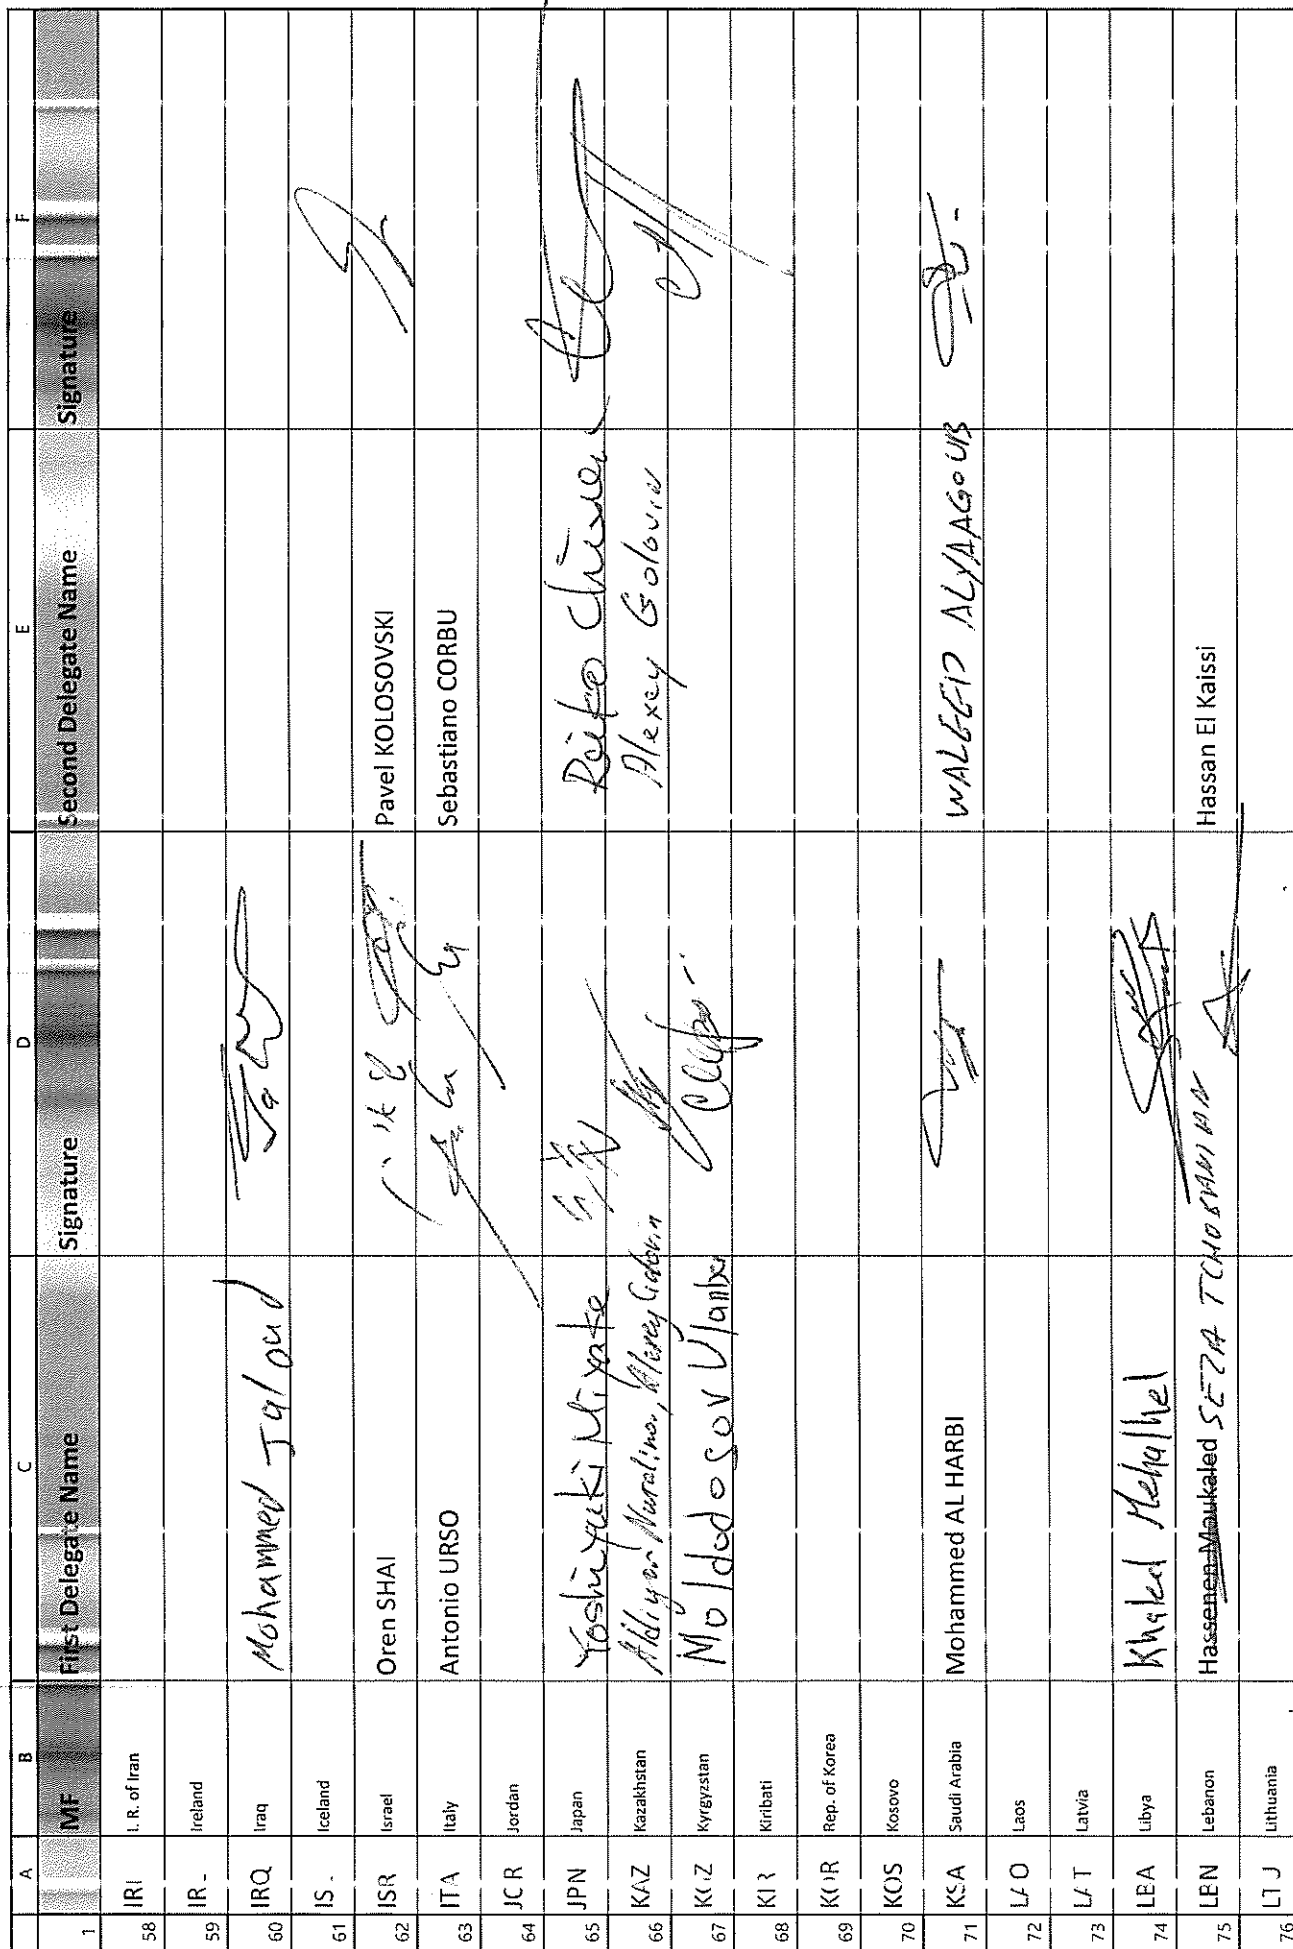 A B C D E F
1 MF First Delegate Name Signature Second Delegate Name Signature
58 IRI I. R. of Iran
59 IR_ Ireland
60 IRQ Iraq Mohammed Jaloud
61 IS_ Iceland
62 ISR Israel Oren SHAI Pavel KOLOSOVSKI
63 ITA Italy Antonio URSO Sebastiano CORBU
JCR Jordan
65 JPN Japan Yoshiyuki Miyake Reiko Chinen
66 KAZ Kazakhstan Aldiyar Nuralinov, Alexey Golovin Alexey Golovin
67 KGZ Kyrgyzstan Moldodosov Ulanbek
68 KIR Kiribati
69 KOR Rep. of Korea
70 KOS Kosovo
71 KSA Saudi Arabia Mohammed AL HARBI WALEED ALYAAGOUB
72 LAO Laos
73 LAT Latvia
74 LBA Libya Khaled Mehalhel
75 LBN Lebanon Hassenen Moukaled SEZA TCHOBANIAN Hassan El Kaissi
76 LTU Lithuania